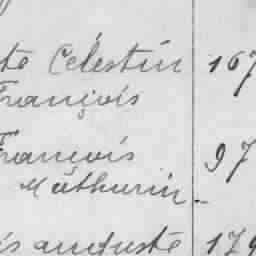 te Célestin 167
François
François 97
Mathurin
is auguste 179